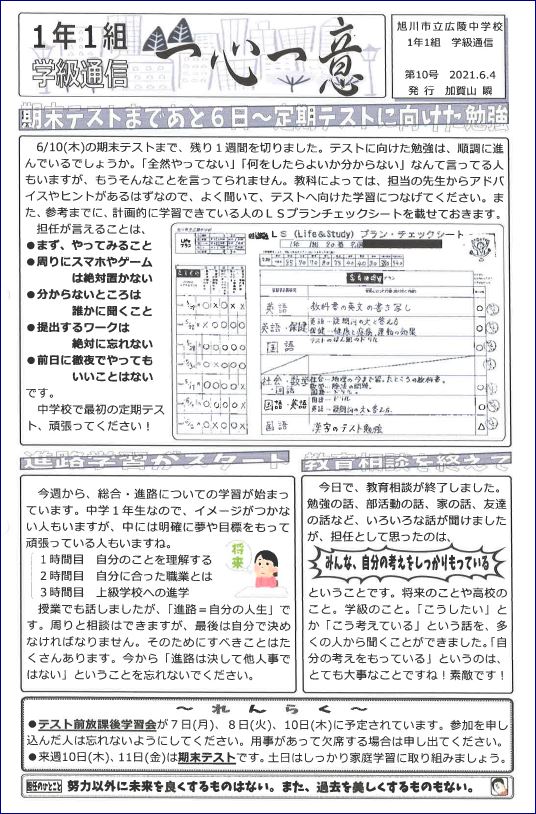 1年1組
学級通信
一心一意
旭川市立広陵中学校
1年1組　学級通信
第10号　2021.6.4
発行　加賀山　瞬
期末テストまであと６日～定期テストに向けた勉強
6/10(木)の期末テストまで、残り１週間を切りました。テストに向けた勉強は、順調に進
んでいるでしょうか。「全然やってない」「何をしたらよいか分からない」なんて言ってる人
もいますが、もうそんなことを言ってられません。教科によっては、担当の先生からアドバ
イスやヒントがあるはずなので、よく聞いて、テストへ向けた学習につなげてください。ま
た、参考までに、計画的に学習できている人のＬＳプランチェックシートを載せておきます。
担任が言えることは、
●まず、やってみること
●周りにスマホやゲーム
は絶対置かない
●分からないところは
誰かに聞くこと
●提出するワークは
絶対に忘れない
●前日に徹夜でやっても
いいことはない
です。
中学校で最初の定期テス
ト、頑張ってください！
ＬＳ（Life＆Study）プラン・チェックシート
英語　教科書の英文の書き写し
英語・保健
国語
社会・数学
国語・英語
国語　漢字のテスト勉強
進路学習がスタート
今週から、総合・進路についての学習が始まっ
ています。中学１年生なので、イメージがつかな
い人もいますが、中には明確に夢や目標をもって
頑張っている人もいますね。
１時間目　自分のことを理解する
２時間目　自分に合った職業とは
３時間目　上級学校への進学
将来
授業でも話しましたが、「進路＝自分の人生」で
す。周りと相談はできますが、最後は自分で決め
なければなりません。そのためにすべきことはた
くさんあります。今から「進路は決して他人事で
はない」ということを忘れないでください。
教育相談を終えて
今日で、教育相談が終了しました。
勉強の話、部活動の話、家の話、友達
の話など、いろいろな話が聞けました
が、担任として思ったのは、
みんな、自分の考えをしっかりもっている
ということです。将来のことや高校の
こと。学級のこと。「こうしたい」と
か「こう考えている」という話を、多
くの人から聞くことができました。「自
分の考えをもっている」というのは、
とても大事なことですね！素敵です！
～れんらく～
●テスト前放課後学習会が７日(月)、８日(火)、10日(木)に予定されています。参加を申し
込んだ人は忘れないようにしてください。用事があって欠席する場合は申し出てください。
●来週10日(木)、11日(金)は期末テストです。土日はしっかり家庭学習に取り組みましょう。
担任のひとこと　努力以外に未来を良くするものはない。また、過去を美しくするものもない。